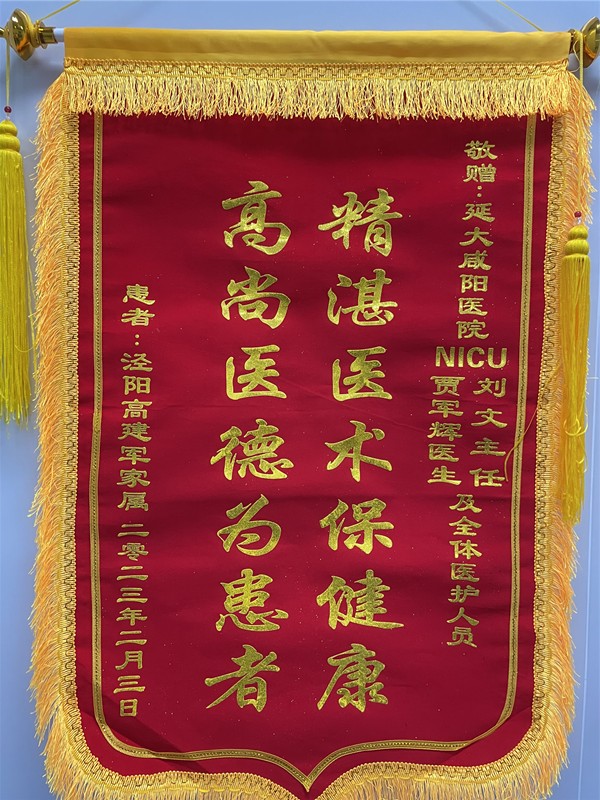 敬赠：延大咸阳医院NICU
刘文主任
贾军辉医生
及全体医护人员
精湛医术保健康
高尚医德为患者
患者：泾阳高建军家属 二零二三年二月三日